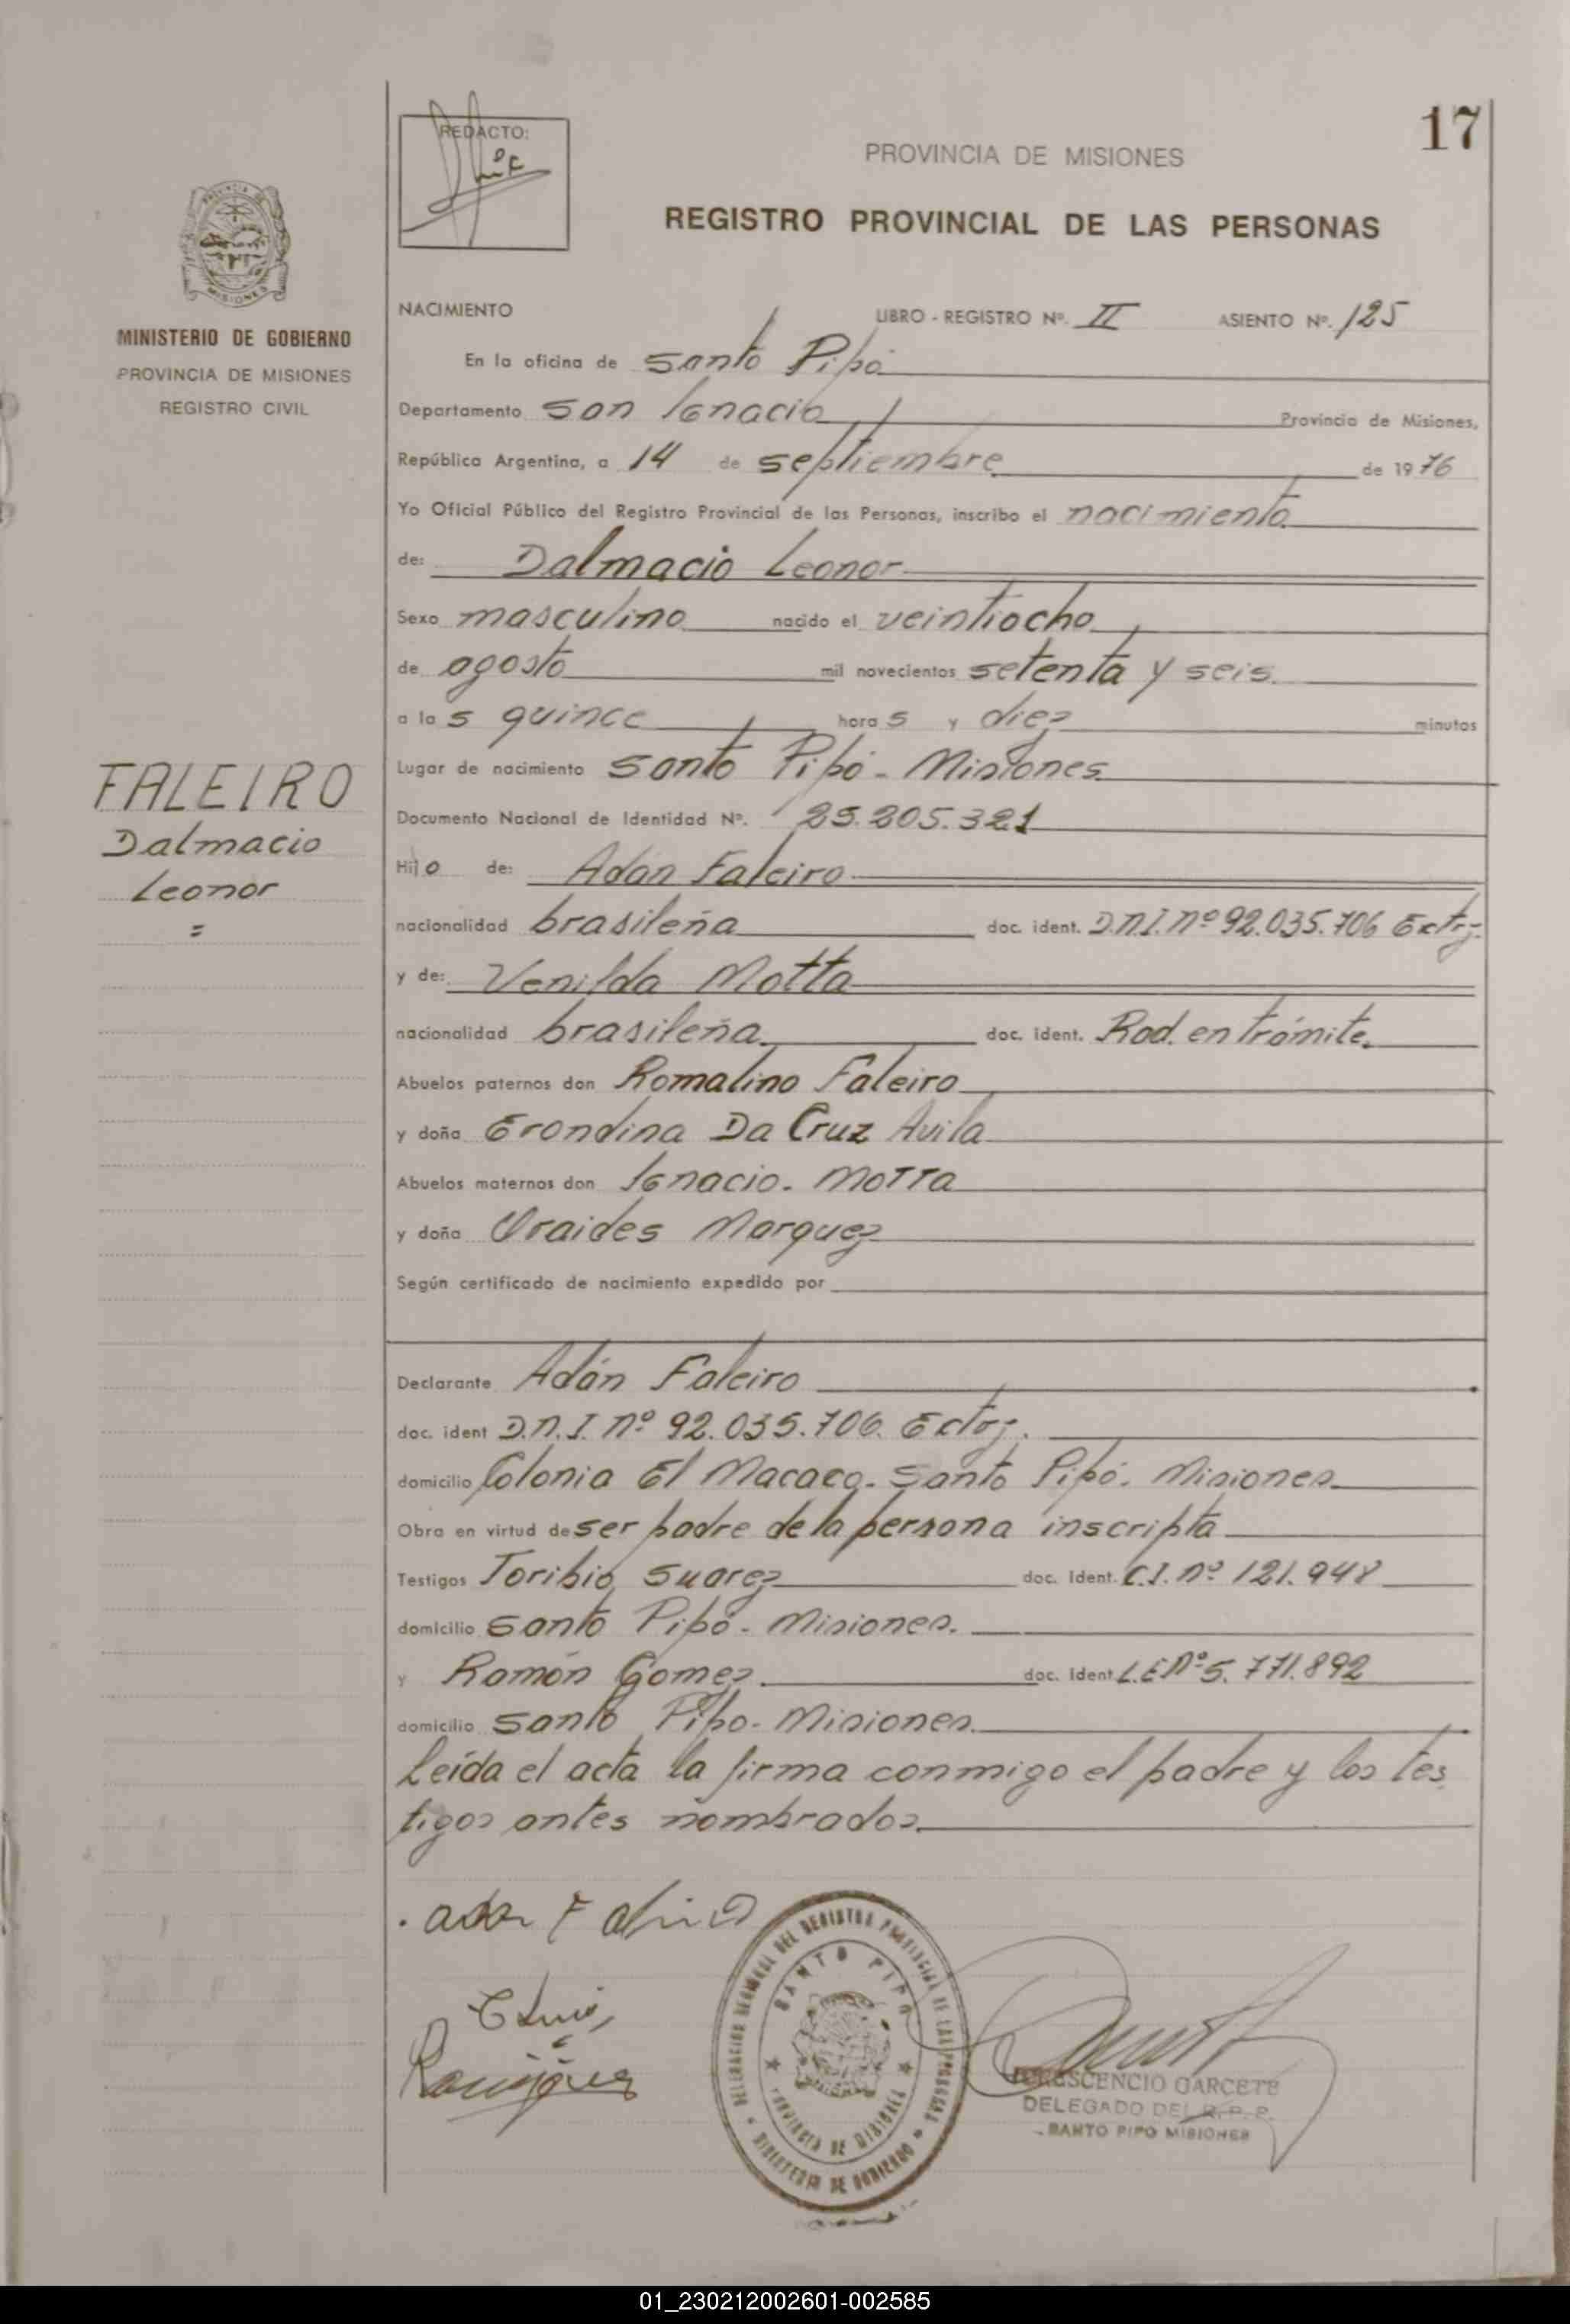 17
REDACTO:
PROVINCIA DE MISIONES
REGISTRO PROVINCIAL DE LAS PERSONAS
MINISTERIO DE GOBIERNO
PROVINCIA DE MISIONES
REGISTRO CIVIL
NACIMIENTO LIBRO - REGISTRO Nº. II ASIENTO Nº. 125
En la oficina de Santo Pipó
Departamento San Ignacio Provincia de Misiones,
República Argentina, a 14 de septiembre de 1976
Yo Oficial Público del Registro Provincial de las Personas, inscribo el nacimiento
de: Dalmacio Leonor
Sexo masculino nacido el veintiocho
de agosto mil novecientos setenta y seis.
a las quince horas y diez minutos
Lugar de nacimiento Santo Pipó - Misiones
FALEIRO
Dalmacio
Leonor
=
Documento Nacional de Identidad Nº. 25.205.321
Hijo de: Adán Faleiro
nacionalidad brasileña doc. ident. D.N.I. nº 92.035.706 Extrj.
y de: Venilda Motta
nacionalidad brasileña. doc. ident. Rad. en trámite.
Abuelos paternos don Romalino Faleiro
y doña Erondina Da Cruz Avila
Abuelos maternos don Ignacio. Motta
y doña Oraides Marquez
Según certificado de nacimiento expedido por
Declarante Adán Faleiro
doc. ident D.N.I. nº 92.035.706. Extrj.
domicilio Colonia El Macaco. Santo Pipó. Misiones
Obra en virtud de ser padre de la persona inscripta
Testigos Toribio Suarez doc. Ident. C.I. nº 121.948
domicilio Santo Pipó - Misiones.
y Ramón Gomez. doc. ident L.E. nº 5.771.892
domicilio Santo Pipo - Misiones.
Leída el acta la firma conmigo el padre y los tes
tigos antes nombrados.
DELEGACION REGIONAL DEL REGISTRO PROVINCIAL DE LAS PERSONAS
SANTO PIPO
PROVINCIA DE MISIONES
MINISTERIO DE GOBIERNO
GARCETE
DELEGADO DEL R.P.P.
SANTO PIPO MISIONES
01_230212002601-002585